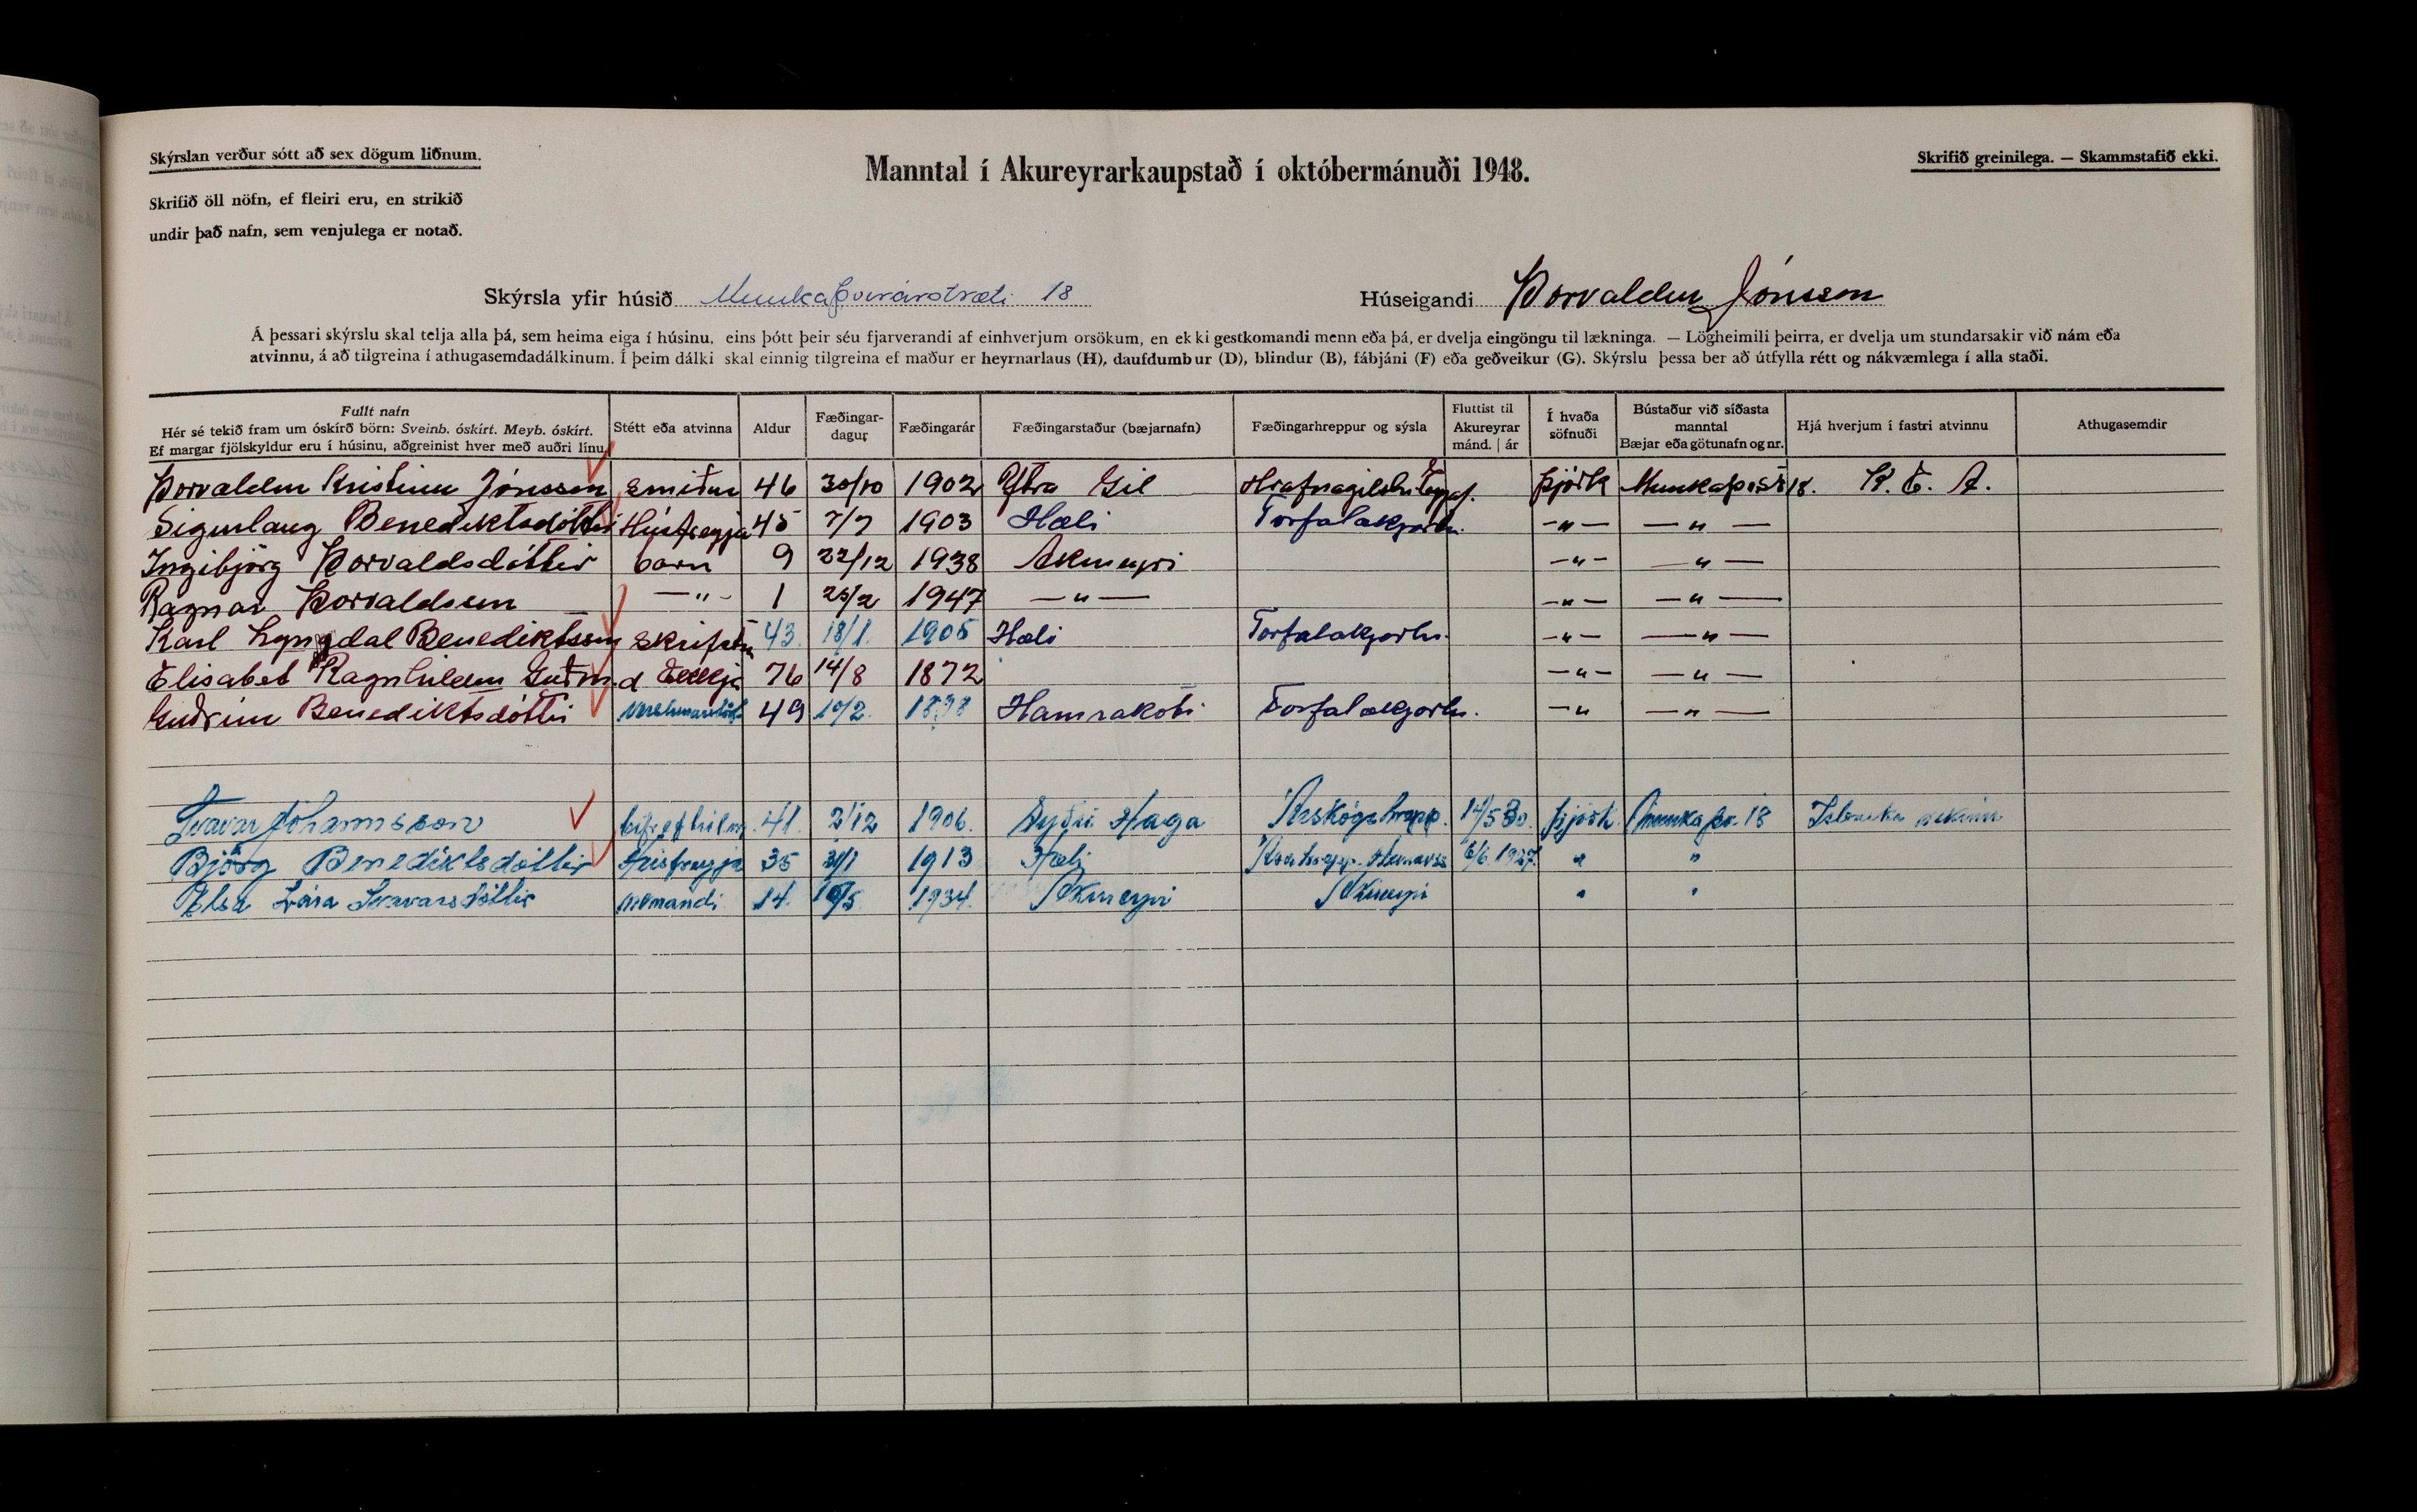 Skýrslan verður sótt að sex dögum liðnum.
Manntal í Akureyrarkaupstað í októbermánuði 1948.
Skrifið greinilega. — Skammstafið ekki.
Skrifið öll nöfn, ef fleiri eru, en strikið
undir það nafn, sem venjulega er notað.
Skýrsla yfir húsið Munkaþverárstræti 18
Húseigandi Þorvaldur Jónsson
Á þessari skýrslu skal telja alla þá, sem heima eiga í húsinu, eins þótt þeir séu fjarverandi af einhverjum orsökum, en ekki gestkomandi menn eða þá, er dvelja eingöngu til lækninga. — Lögheimili þeirra, er dvelja um stundarsakir við nám eða
atvinnu, á að tilgreina í athugasemdadálkinum. Í þeim dálki skal einnig tilgreina ef maður er heyrnarlaus (H), daufdumbur (D), blindur (B), fábjáni (F) eða geðveikur (G). Skýrslu þessa ber að útfylla rétt og nákvæmlega í alla staði.
Fullt nafn
Hér sé tekið fram um óskírð börn: Sveinb. óskírt. Meyb. óskírt.
Ef margar fjölskyldur eru í húsinu, aðgreinist hver með auðri línu
Stétt eða atvinna
Aldur
Fæðingar-
dagur
Fæðingarár
Fæðingarstaður (bæjarnafn)
Fæðingarhreppur og sýsla
Fluttist til
Akureyrar
mánd. | ár
Í hvaða
söfnuði
Bústaður við síðasta
manntal
Bæjar eða götunafn og nr.
Hjá hverjum í fastri atvinnu
Athugasemdir
Þorvaldur Kristinn Jónsson smiður 46 30/10 1902 Ytra Gil Þjóðk K. E. A.
Sigurlaug Benediktsdóttir Húsfreyja 45 7/7 1903 Hæli Torfalækjarhr. —"— —"—
Ingibjörg Þorvaldsdóttir barn 9 22/12 1938 Akureyri —"— —"—
Ragnar Þorvaldsson —"— 1 25/2 1947 —"— —"— —"—
Karl Lyngdal Benediktsson 43. 18/1. 1905 Hæli Torfalækjarhr. —"— —"—
Elisabet Ragnhildur Guðm.d ekkja 76 14/8 1872 —"— —"—
Guðrún Benediktsdóttir 49 10/2. Hamrakoti Torfalækjarhr. —" —"—
Svavar Jóhannsson 41. 2/12 1906. Syðri Haga Árskógshrepp. 14/5 30. þjóðk. 18
Björg Benediktsdóttir Húsfreyja 35 1913 Hæli 6/6. 1927. " "
Elsa Lára Svavarsdóttir nemandi 14. 1934. Akureyri Akureyri " "